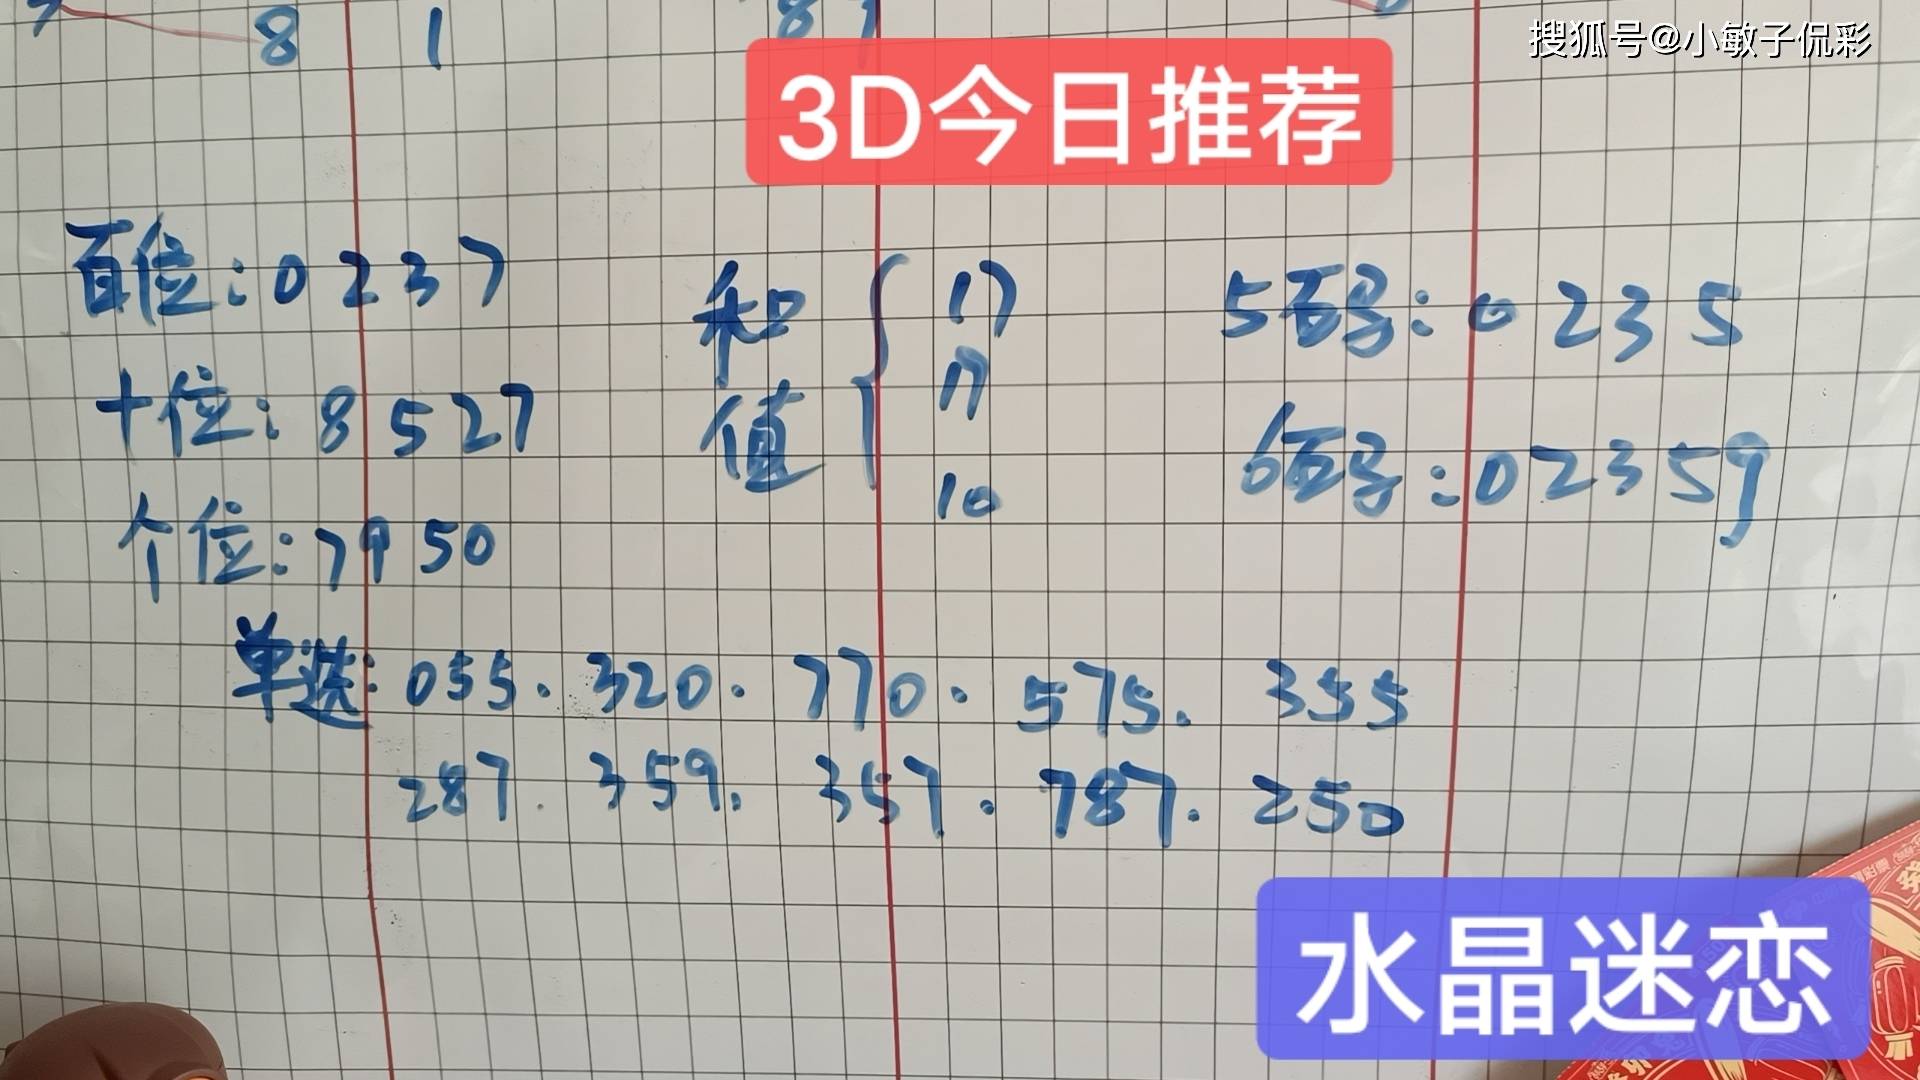 8 1 8 1
搜狐号@小敏子侃彩
3D今日推荐
百位:0237
十位:8527
个位:7950
和值{17
17
10
5百码:0235
6百码:02359
单选:055.320.770.575.355
287.359.357.787.250
水晶迷恋